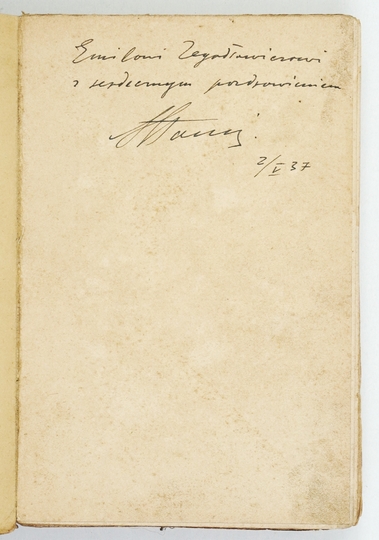 Emilowi Zegadłowiczowi
z serdecznym pozdrowieniem
2/V 37